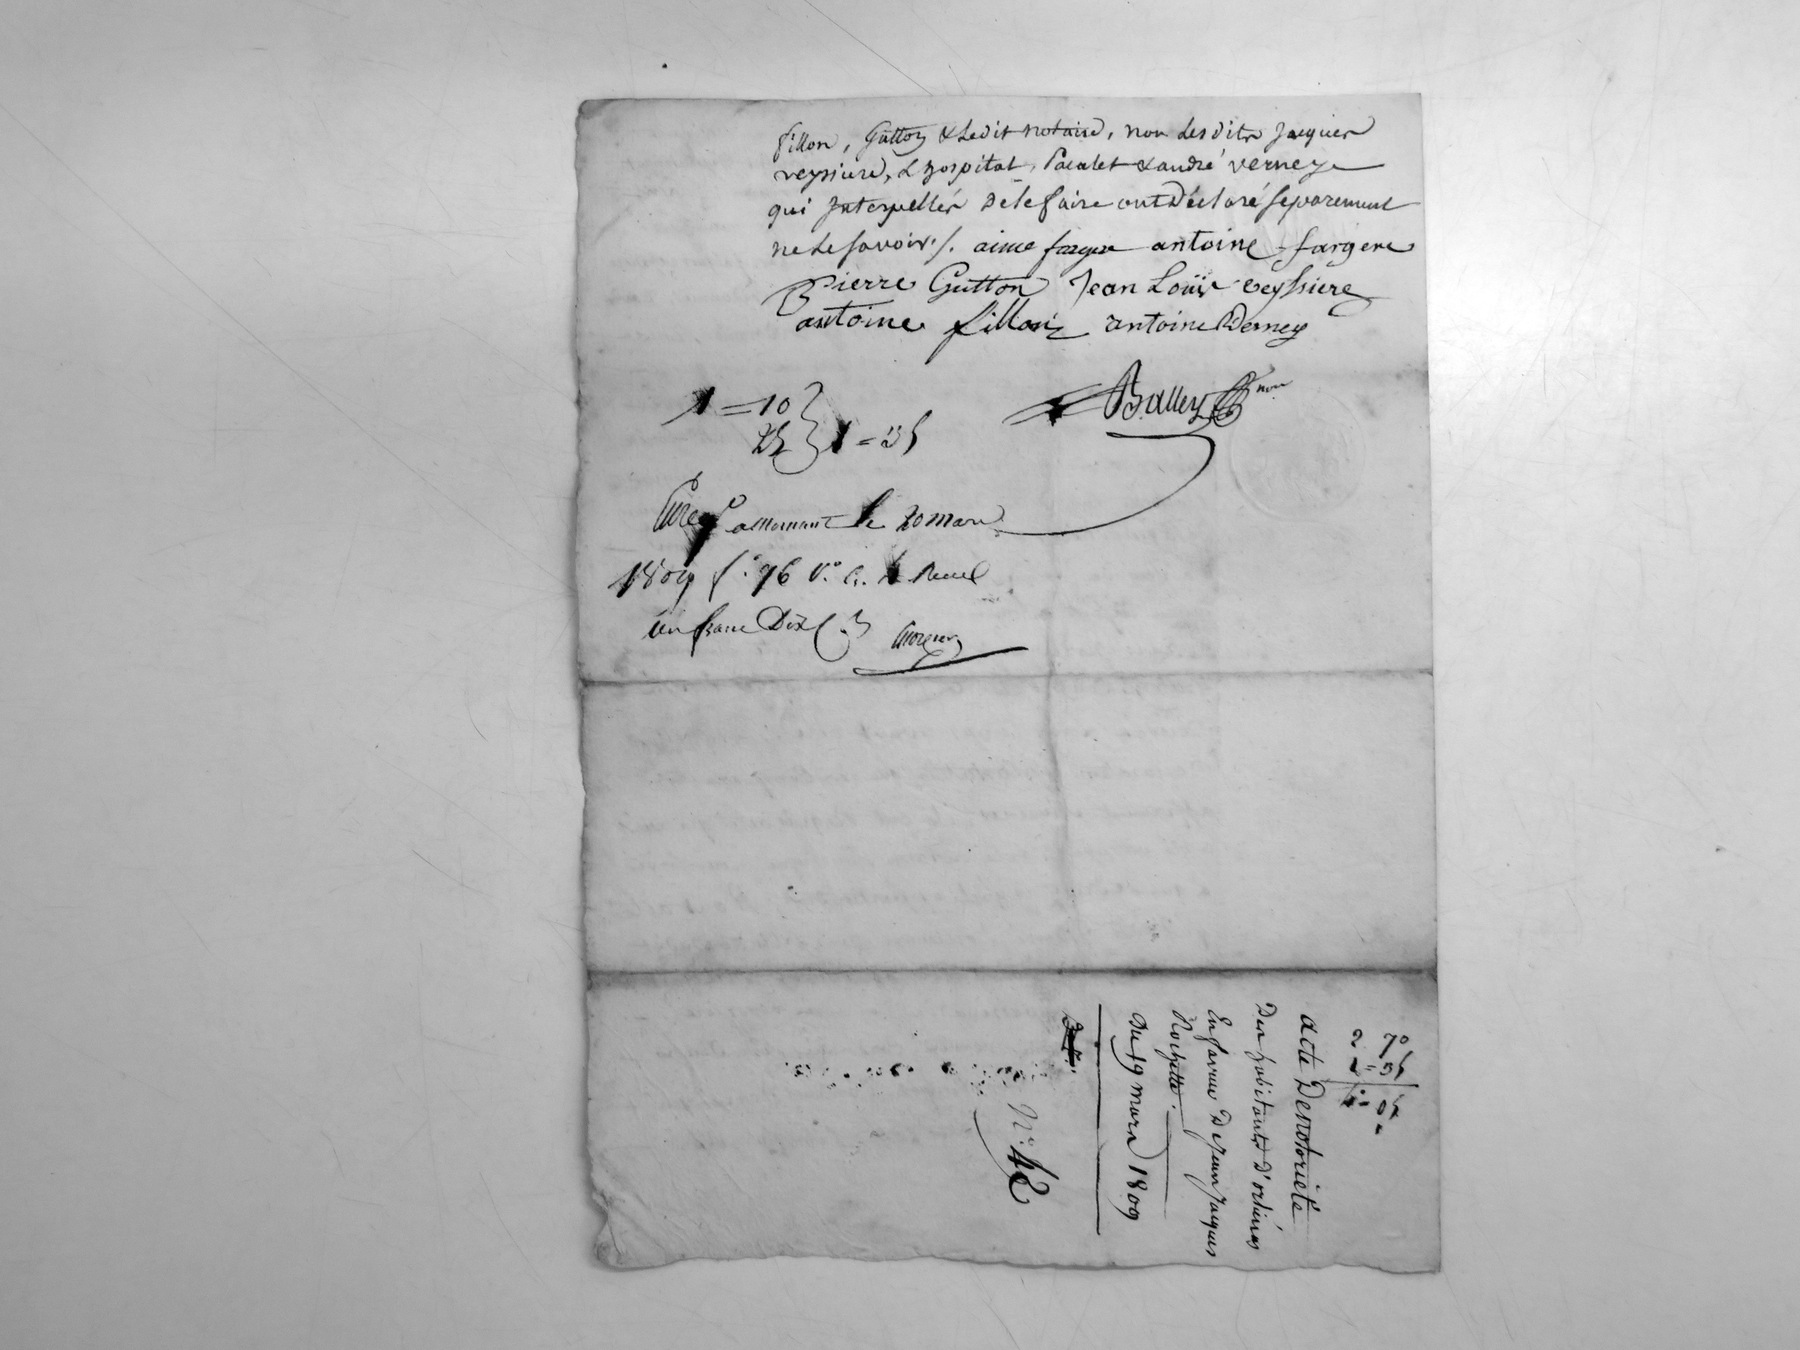 fillon, Gutton & Ledit notaire, non Lesdits Jacques
veyssiere, L'hospital, Pacalet & andré verney
qui Interpellés de le faire ont Déclaré separement
ne Le savoir ./. aimé farge antoine fargere
Pierre Gutton Jean Louïs veyssiere
antoine fillon antoine Verney
1 = 10
25 } 1 = 35
Balley nore
Enreg. le 20 mars
1809 f.° 76 v.° c. Recu
un franc Dix c.
acte De notorieté
Des habitants d'orliénas
En faveur De Jean Jacques
Rochette.
Du 19 mars 1809
2 70
1 = 35
4 = 05
N°. 42